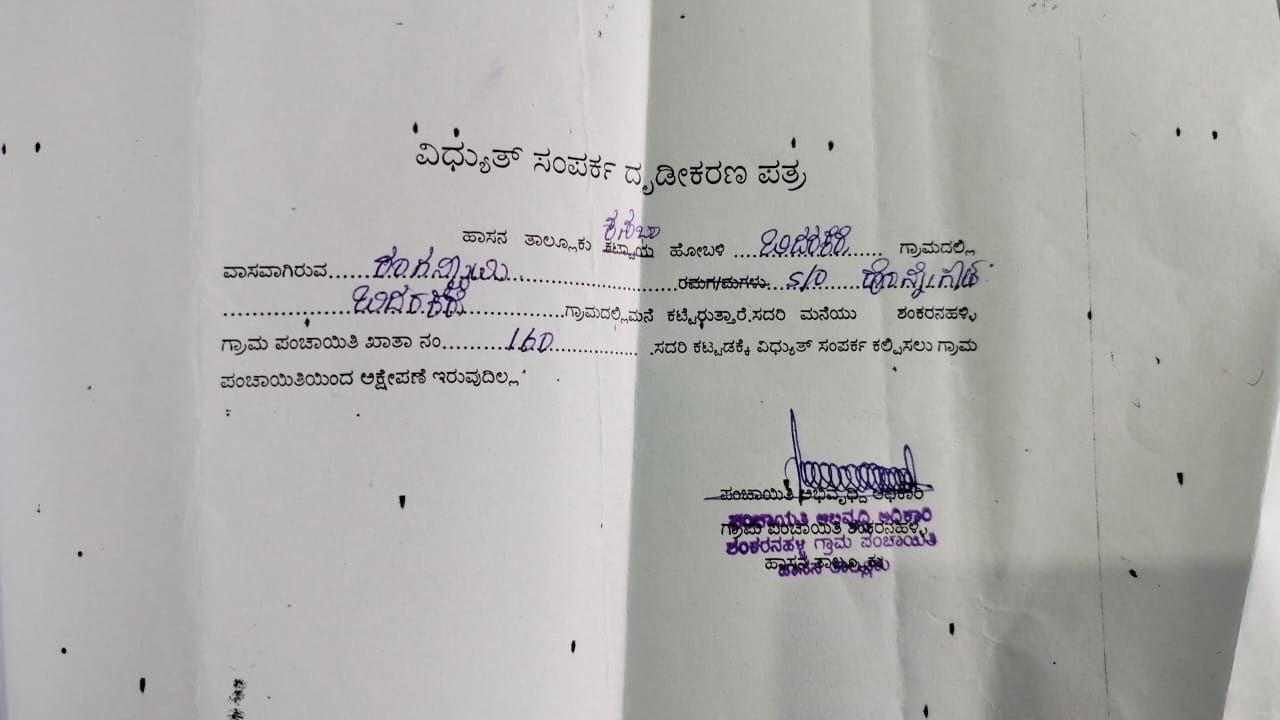 ವಿಧ್ಯುತ್ ಸಂಪರ್ಕ ದೃಡೀಕರಣ ಪತ್ರ
ಹಾಸನ ತಾಲ್ಲೂಕು ಕಸಬಾ ಕಟ್ಟಾಯ ಹೋಬಳಿ ...ಬಿದರಕೆರೆ...... ಗ್ರಾಮದಲ್ಲಿ
ವಾಸವಾಗಿರುವ......ರಂಗಸ್ವಾಮಿ..............................ರಮಗ/ಮಗಳು... S/O ......ಹೊನ್ನೇಗೌಡ
...................ಬಿದರಕೆರೆ...................ಗ್ರಾಮದಲ್ಲಿಮನೆ ಕಟ್ಟಿರುತ್ತಾರೆ.ಸದರಿ ಮನೆಯು ಶಂಕರನಹಳ್ಳಿ
ಗ್ರಾಮ ಪಂಚಾಯಿತಿ ಖಾತಾ ನಂ..........160.............. .ಸದರಿ ಕಟ್ಟಡಕ್ಕೆ ವಿಧ್ಯುತ್ ಸಂಪರ್ಕ ಕಲ್ಪಿಸಲು ಗ್ರಾಮ
ಪಂಚಾಯಿತಿಯಿಂದ ಆಕ್ಷೇಪಣೆ ಇರುವುದಿಲ್ಲ.
ಪಂಚಾಯಿತಿ ಅಭಿವೃಧ್ದಿ ಅಧಿಕಾರಿ
ಗ್ರಾಮ ಪಂಚಾಯಿತಿ ಶಂಕರನಹಳ್ಳಿ
ಶಂಕರನಹಳ್ಳಿ ಗ್ರಾಮ ಪಂಚಾಯಿತಿ
ಹಾಸನ ತಾಲ್ಲೂಕು